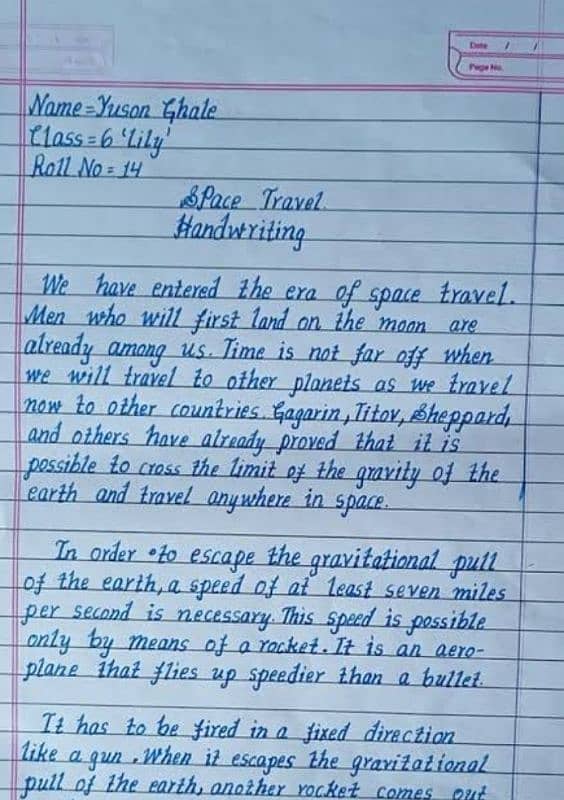 Date / /
Page No.
Name=Yuson Ghale
Class=6 'Lily'
Roll No = 14
Space Travel.
Handwriting
We have entered the era of space travel.
Men who will first land on the moon are
already among us. Time is not far off when
we will travel to other planets as we travel
now to other countries. Gagarin, Titov, Sheppard,
and others have already proved that it is
possible to cross the limit of the gravity of the
earth and travel anywhere in space.
In order to escape the gravitational pull
of the earth, a speed of at least seven miles
per second is necessary. This speed is possible
only by means of a rocket. It is an aero-
plane that flies up speedier than a bullet.
It has to be fired in a fixed direction
like a gun. When it escapes the gravitational
pull of the earth, another rocket comes out